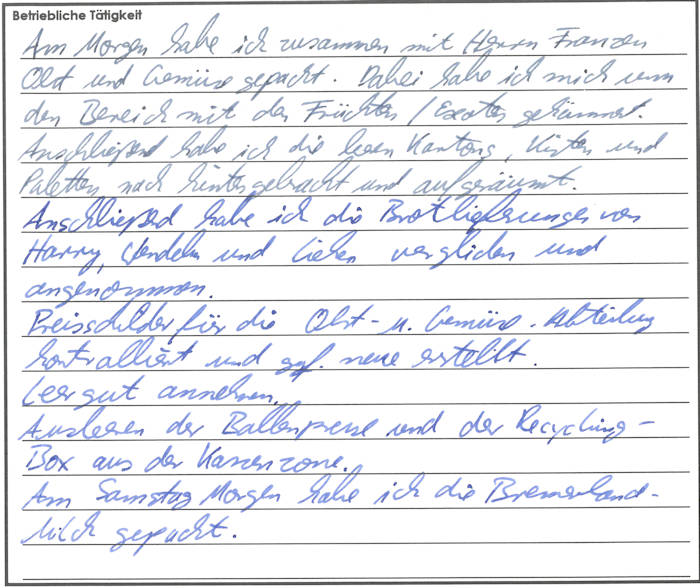 Betriebliche Tätigkeit
Am Morgen habe ich zusammen mit Herrn Franzen
Obst und Gemüse gepackt. Dabei habe ich mich um
den Bereich mit den Früchten / Exoten gekümmert.
Anschließend habe ich die leeren Kartons, Kisten und
Paletten nach hinten gebracht und aufgeräumt.
Anschließend habe ich die Brotlieferungen von
Harry, und Lieken verglichen und
angenommen.
Preisschilder für die Obst- u. Gemüse-Abteilung
kontrolliert und ggf. neue erstellt.
Leergut annehmen.
Ausleeren der Ballenpresse und der Recycling-
Box aus der Kassenzone.
Am Samstag Morgen habe ich die Bremerland-
Milch gepackt.